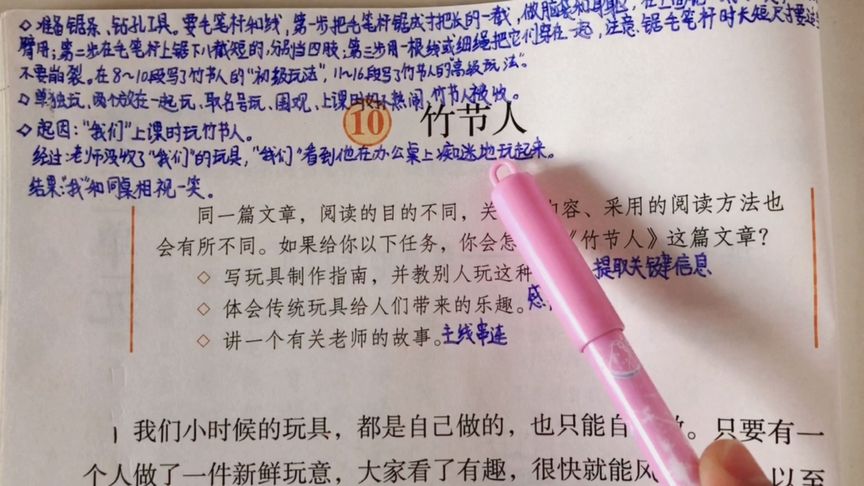 ◇准备锯条、钻孔工具。要毛笔杆和线,第一步把毛笔杆锯成寸把长的一截,做脑袋和身躯,在上面
臂用;第二步在毛笔杆上锯下八截短的,分别当四肢;第三步用一根线或细绳把它们穿在一起,注意:锯毛笔杆时长短尺寸要
不要崩裂。在8~10段写了竹节人的“初级玩法”,11~16段写了竹节人的“高级玩法”。
◇单独玩、两个放在一起玩、取名号玩、围观、上课时 竹节人被收。
◇起因:“我们”上课时玩竹节人。
10 竹节人
经过:老师没收了“我们”的玩具,“我们”看到他在办公桌上痴迷地玩起来。
结果:“我”和同桌相视一笑。
同一篇文章,阅读的目的不同,关 内容、采用的阅读方法也
会有所不同。如果给你以下任务,你会怎 《竹节人》这篇文章?
◇ 写玩具制作指南,并教别人玩这种 提取关键信息
◇ 体会传统玩具给人们带来的乐趣。感
◇ 讲一个有关老师的故事。主线串连
1 我们小时候的玩具,都是自己做的,也只能自 。只要有一
个人做了一件新鲜玩意,大家看了有趣,很快就能风 以至